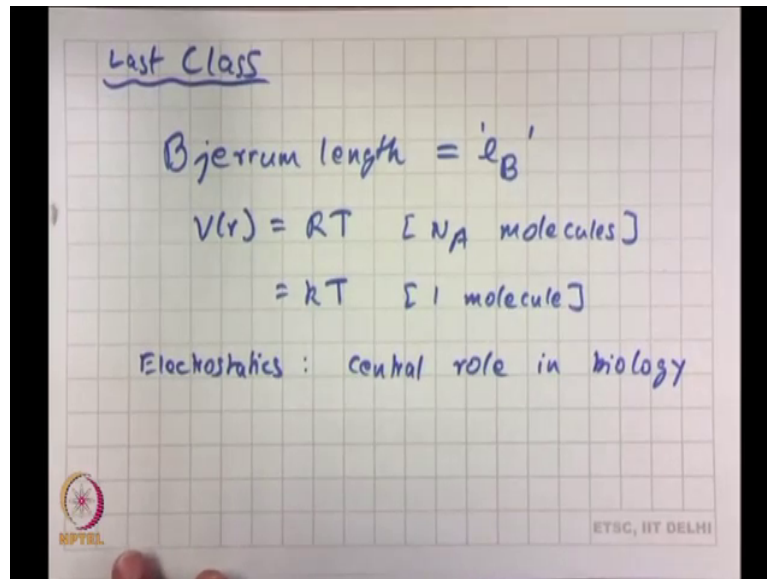 Last Class
Bjerrum length = 'lB'
V(r) = RT [ NA molecules ]
= kT [ 1 molecule ]
Electrostatics : central role in biology
NPTEL
ETSC, IIT DELHI